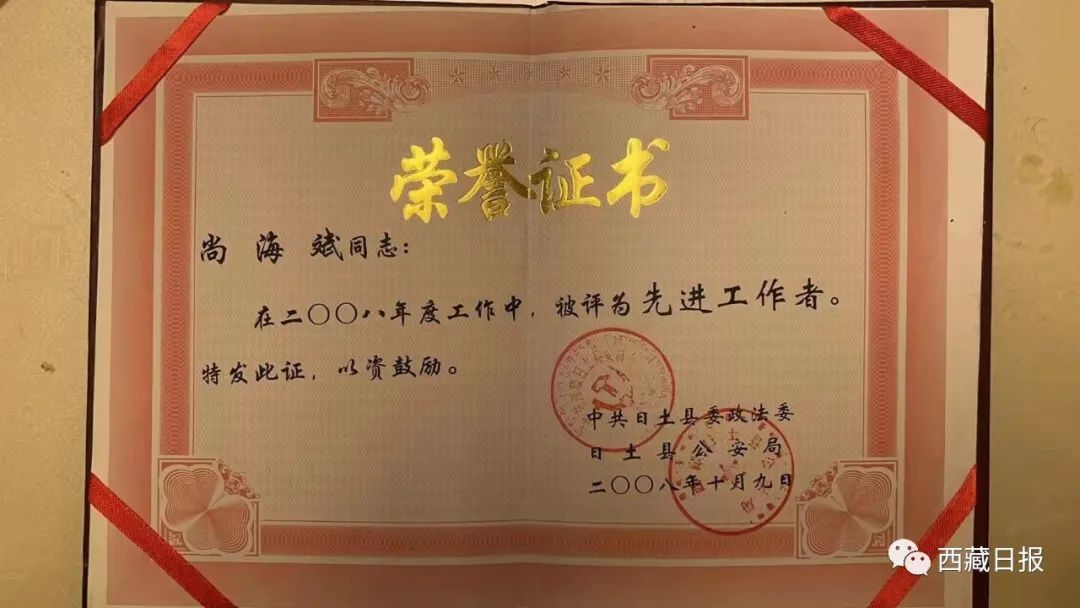 荣誉证书
尚海斌同志：
在二〇〇八年度工作中，被评为先进工作者。
特发此证，以资鼓励。
中共日土县委政法委
日土县公安局
二〇〇八年十月九日
西藏日报